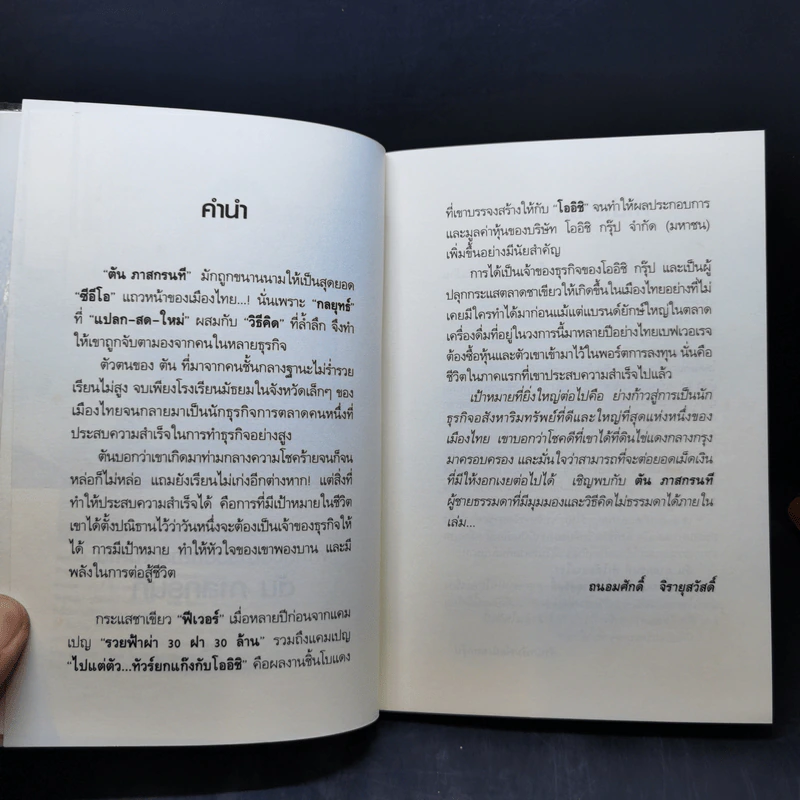 คำนำ
"ตัน ภาสกรนที" มักถูกขนานนามให้เป็นสุดยอด
"ซีอีโอ" แถวหน้าของเมืองไทย...! นั่นเพราะ "กลยุทธ์"
ที่ "แปลก-สด-ใหม่" ผสมกับ "วิธีคิด" ที่ล้ำลึก จึงทำ
ให้เขาถูกจับตามองจากคนในหลายธุรกิจ
ตัวตนของ ตัน ที่มาจากคนชั้นกลางฐานะไม่ร่ำรวย
เรียนไม่สูง จบเพียงโรงเรียนมัธยมในจังหวัดเล็กๆ ของ
เมืองไทยจนกลายมาเป็นนักธุรกิจการตลาดคนหนึ่งที่
ประสบความสำเร็จในการทำธุรกิจอย่างสูง
ตันบอกว่าเขาเกิดมาท่ามกลางความโชคร้ายจนก็จน
หล่อก็ไม่หล่อ แถมยังเรียนไม่เก่งอีกต่างหาก! แต่สิ่งที่
ทำให้ประสบความสำเร็จได้ คือการที่มีเป้าหมายในชีวิต
เขาได้ตั้งปณิธานไว้ว่าวันหนึ่งจะต้องเป็นเจ้าของธุรกิจให้
ได้ การมีเป้าหมาย ทำให้หัวใจของเขาพองบาน และมี
พลังในการต่อสู้ชีวิต
กระแสชาเขียว "ฟีเวอร์" เมื่อหลายปีก่อนจากแคม
เปญ "รวยฟ้าผ่า 30 ฝา 30 ล้าน" รวมถึงแคมเปญ
"ไปแต่ตัว...ทัวร์ยกแก๊งกับโออิชิ" คือผลงานชิ้นโบแดง
ที่เขาบรรจงสร้างให้กับ "โออิชิ" จนทำให้ผลประกอบการ
และมูลค่าหุ้นของบริษัท โออิชิ กรุ๊ป จำกัด (มหาชน)
เพิ่มขึ้นอย่างมีนัยสำคัญ
การได้เป็นเจ้าของธุรกิจของโออิชิ กรุ๊ป และเป็นผู้
ปลุกกระแสตลาดชาเขียวให้เกิดขึ้นในเมืองไทยอย่างที่ไม่
เคยมีใครทำได้มาก่อนแม้แต่แบรนด์ยักษ์ใหญ่ในตลาด
เครื่องดื่มที่อยู่ในวงการนี้มาหลายปีอย่างไทยเบฟเวอเรจ
ต้องซื้อหุ้นและตัวเขาเข้ามาไว้ในพอร์ตการลงทุน นั่นคือ
ชีวิตในภาคแรกที่เขาประสบความสำเร็จไปแล้ว
เป้าหมายที่ยิ่งใหญ่ต่อไปคือ ย่างก้าวสู่การเป็นนัก
ธุรกิจอสังหาริมทรัพย์ที่ดีและใหญ่ที่สุดแห่งหนึ่งของ
เมืองไทย เขาบอกว่าโชคดีที่เขาได้ที่ดินไข่แดงกลางกรุง
มาครอบครอง และมั่นใจว่าสามารถที่จะต่อยอดเม็ดเงิน
ที่มีให้งอกเงยต่อไปได้ เชิญพบกับ ตัน ภาสกรนที
ผู้ชายธรรมดาที่มีมุมมองและวิธีคิดไม่ธรรมดาได้ภายใน
เล่ม...
ถนอมศักดิ์ จิรายุสวัสดิ์